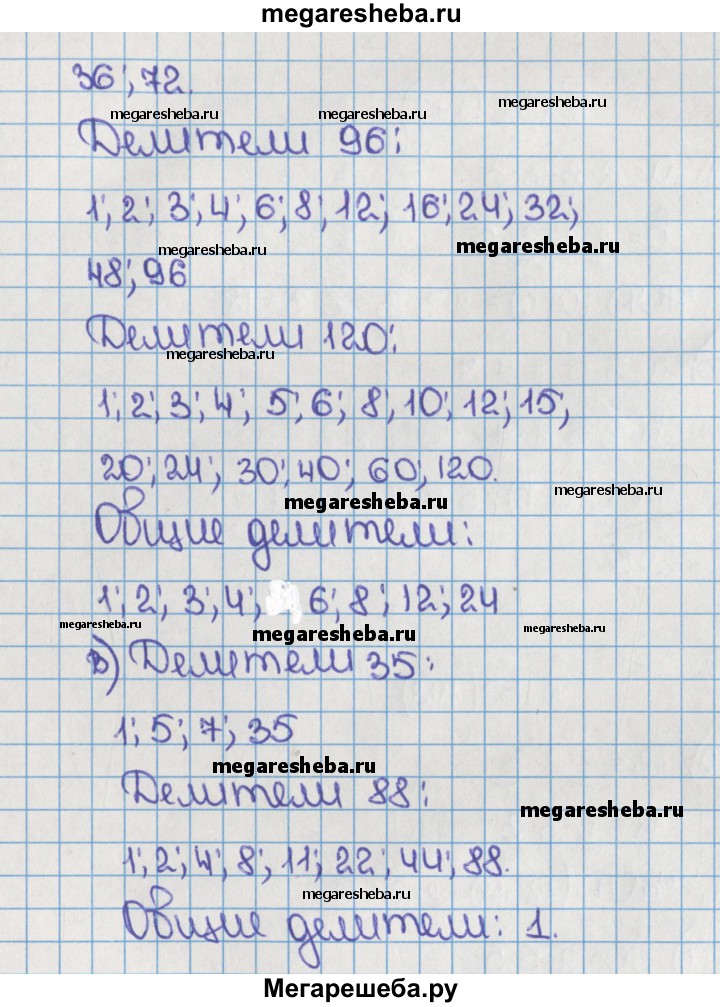 megaresheba.ru
36; 72.
megaresheba.ru megaresheba.ru megaresheba.ru
Делители 96:
1; 2; 3; 4; 6; 8; 12; 16; 24; 32;
megaresheba.ru megaresheba.ru
48; 96
Делители 120:
megaresheba.ru
1; 2; 3; 4; 5; 6; 8; 10; 12; 15;
20; 24; 30; 40; 60; 120.
megaresheba.ru megaresheba.ru
Общие делители:
1; 2; 3; 4; 6; 8; 12; 24
megaresheba.ru megaresheba.ru megaresheba.ru
в) Делители 35:
1; 5; 7; 35
megaresheba.ru
Делители 88:
megaresheba.ru
1; 2; 4; 8; 11; 22; 44; 88.
megaresheba.ru
Общие делители: 1.
Мегарешеба.ру